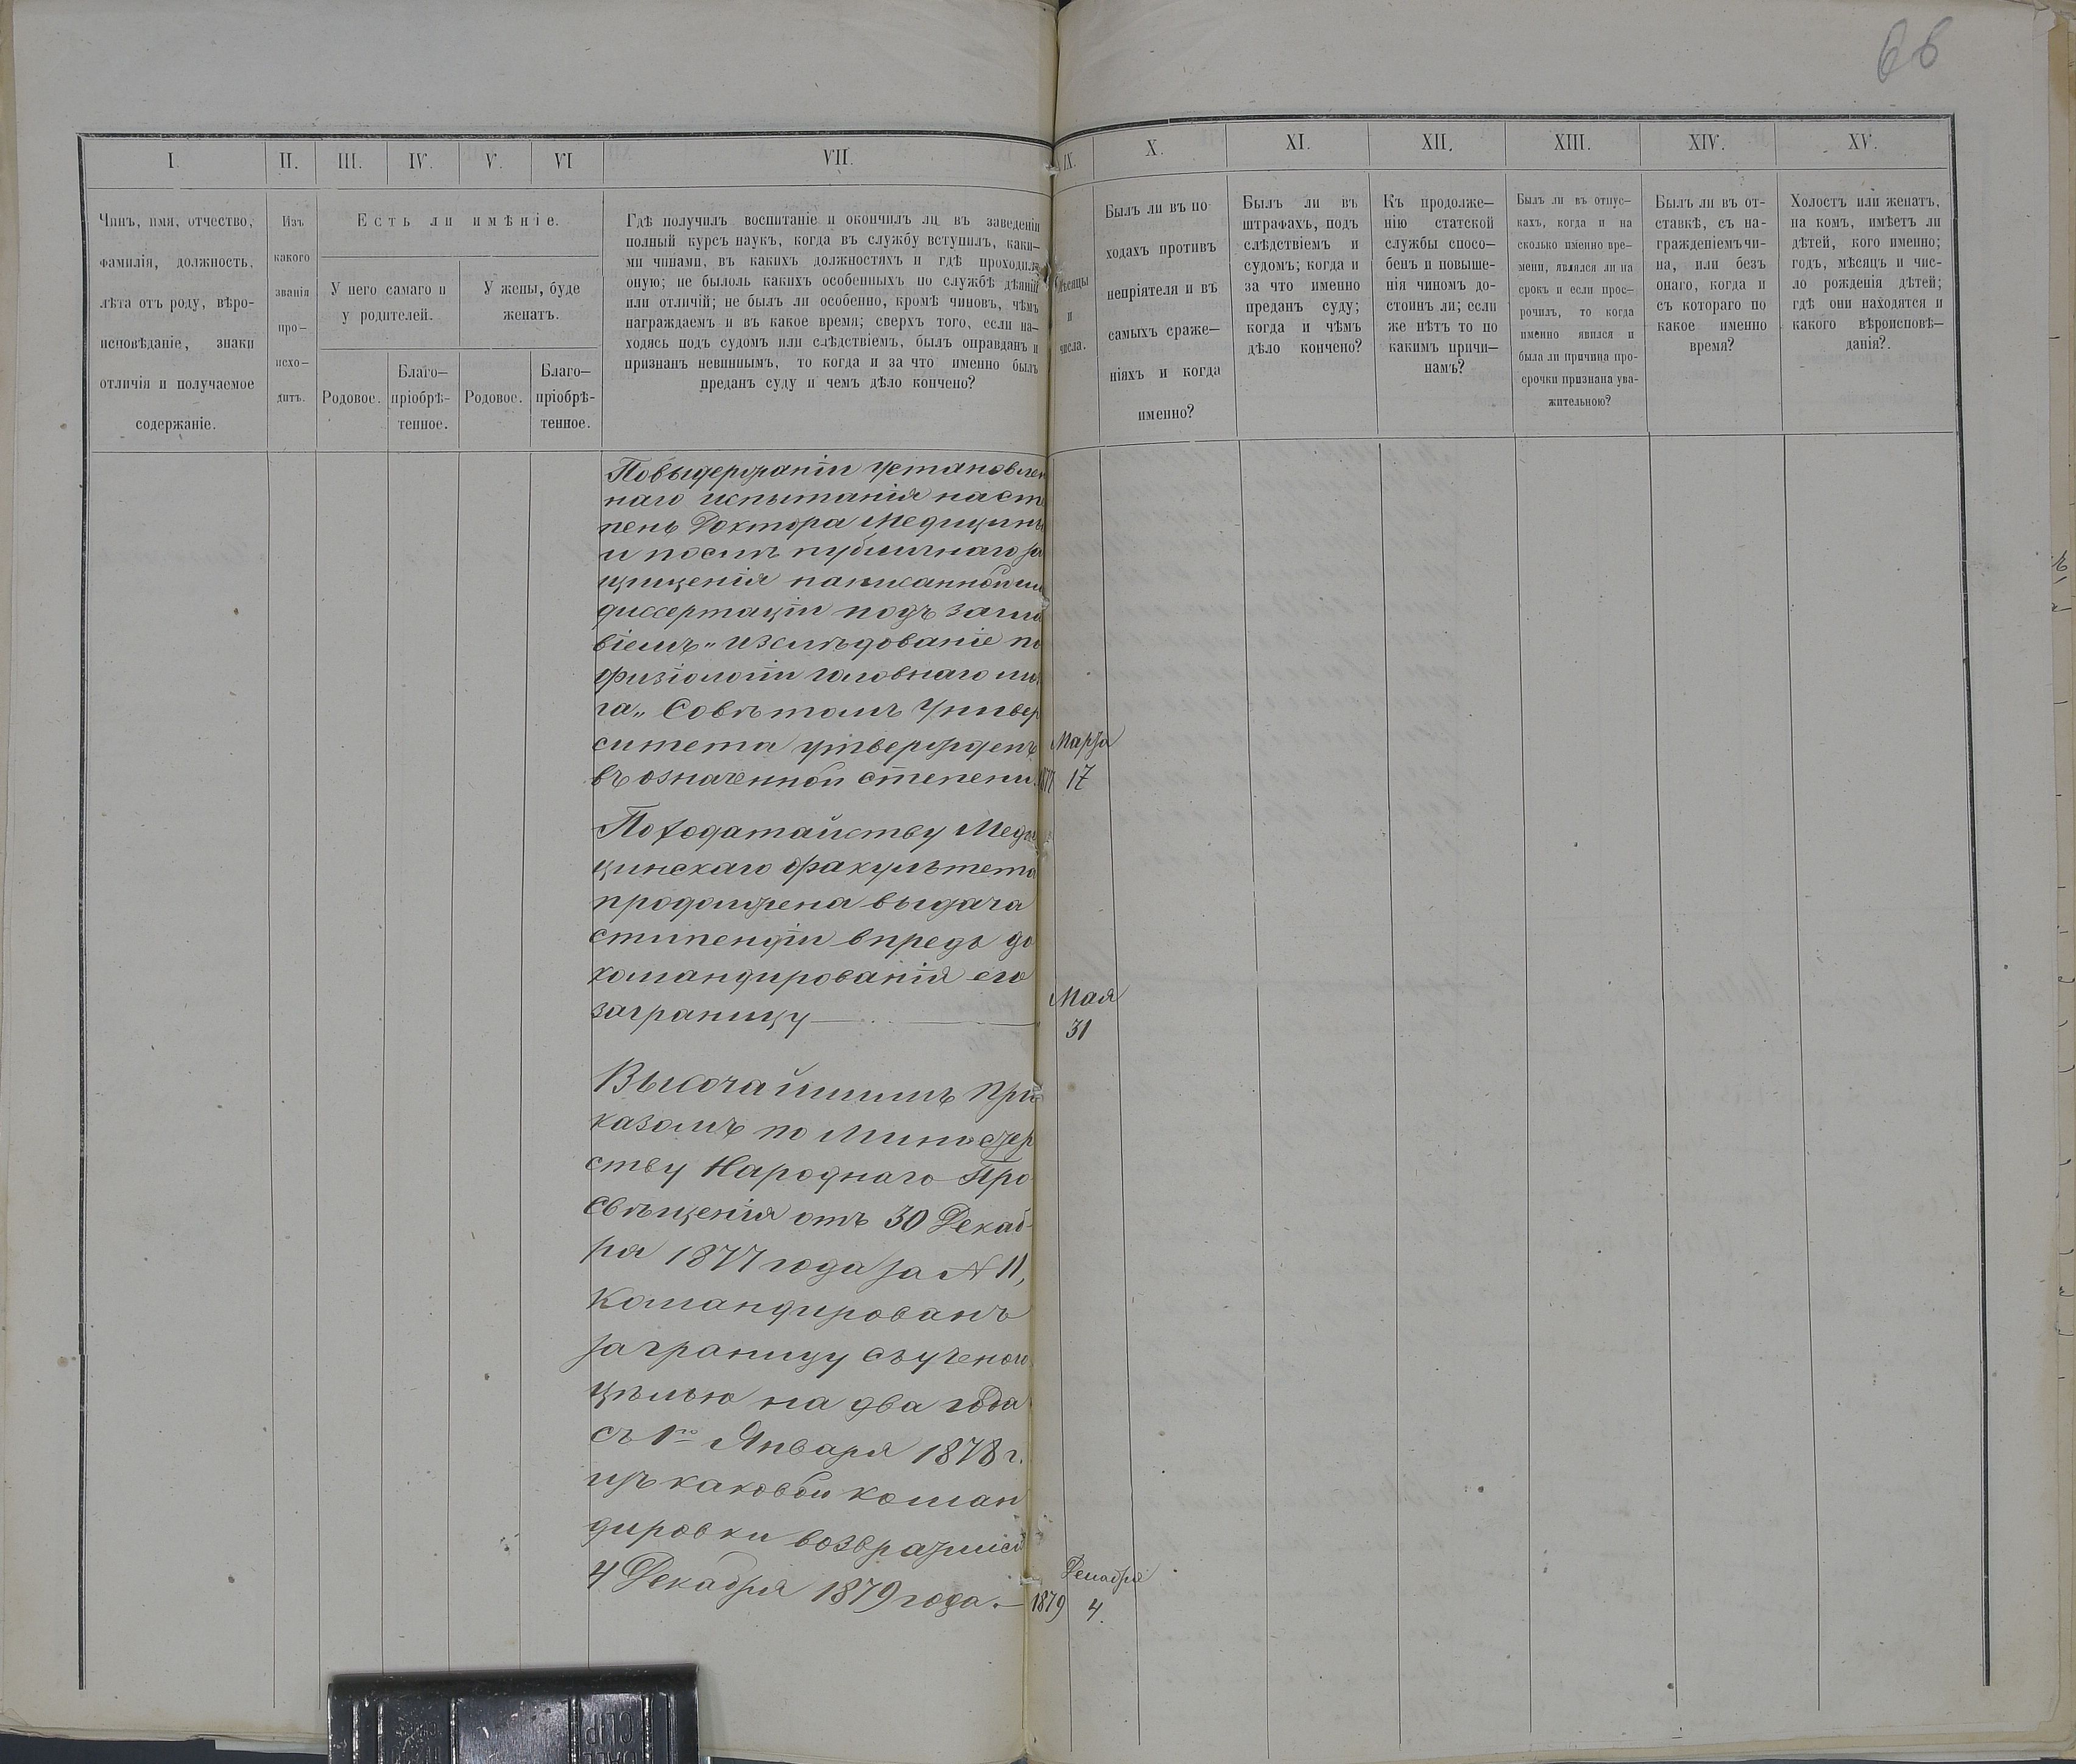 66
I.
II.
III.
IV.
V.
VI
VII.
IX.
X.
XI.
XII.
XIII.
XIV.
XV.
Чинъ, имя, отчество,
фамилія, должность,
лѣта отъ роду, вѣро-
исповѣданіе, знаки
отличія и получаемое
содержаніе.
Изъ
какого
званія
про-
исхо-
дитъ.
Есть ли имѣніе.
У него самаго и
у родителей.
У жены, буде
женатъ.
Родовое.
Благо-
пріобрѣ-
тенное.
Родовое.
Благо-
пріобрѣ-
тенное.
Гдѣ получилъ воспитаніе и окончилъ ли въ заведеніи
полный курсъ наукъ, когда въ службу вступилъ, каки-
ми чинами, въ какихъ должностяхъ и гдѣ проходилъ
оную; не былоль какихъ особенныхъ по службѣ дѣяній
или отличій; не былъ ли особенно, кромѣ чиновъ, чѣмъ
награждаемъ и въ какое время; сверхъ того, если на-
ходясь подъ судомъ или слѣдствіемъ, былъ оправданъ и
признанъ невиннымъ, то когда и за что именно былъ
преданъ суду и чемъ дѣло кончено?
Мѣсяцы
и
числа.
Былъ ли въ по-
ходахъ противъ
непріятеля и въ
самыхъ сраже-
ніяхъ и когда
именно?
Былъ ли въ
штрафахъ, подъ
слѣдствіемъ и
судомъ; когда и
за что именно
преданъ суду;
когда и чѣмъ
дѣло кончено?
Къ продолже-
нію статской
службы спосо-
бенъ и повыше-
нія чиномъ до-
стоинъ ли; если
же нѣтъ то по
какимъ причи-
намъ?
Былъ ли въ отпус-
кахъ, когда и на
сколько именно вре-
мени, являлся ли на
срокъ и если прос-
рочилъ, то когда
именно явился и
была ли причина про-
срочки признана ува-
жительною?
Былъ ли въ от-
ставкѣ, съ на-
гражденіемъ чи-
на, или безъ
онаго, когда и
съ котораго по
какое именно
время?
Холостъ или женатъ,
на комъ, имѣетъ ли
дѣтей, кого именно;
годъ, мѣсяцъ и чис-
ло рожденія дѣтей;
гдѣ они находятся и
какого вѣроисповѣ-
данія?.
По выдержаніи установлен
наго испытанія на сте
пень Доктора Медицины
и послѣ публичнаго за
щищенія написанной им
диссертаціи подъ загла
віемъ „изслѣдованіе по
физіологіи головнаго моз
га„ Совѣтомъ Универ
ситета утвержденъ
въ означенной степени.
1877
Марта
17
По ходатайству Меди
цинскаго факультета
продолжена выдача
стипендіи впредь до
командированія его
заграницу —
Мая
31
Высочайшимъ при
казомъ по Министер
ству Народнаго Про
свѣщенія отъ 30 Декаб-
ря 1877 года за № 11,
командированъ
заграницу съ ученою
цѣлью на два года
съ 1го Января 1878 г.
изъ каковой коман
дировки возвратился
4 Декабря 1879 года. —
1879
Декабря
4.